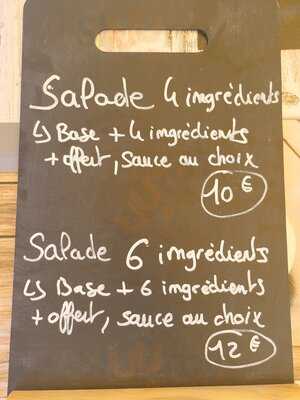 Salade 4 ingrédients
↳ Base + 4 ingrédients
+ offert, sauce au choix
10 €
Salade 6 ingrédients
↳ Base + 6 ingrédients
+ offert, sauce au choix
12 €